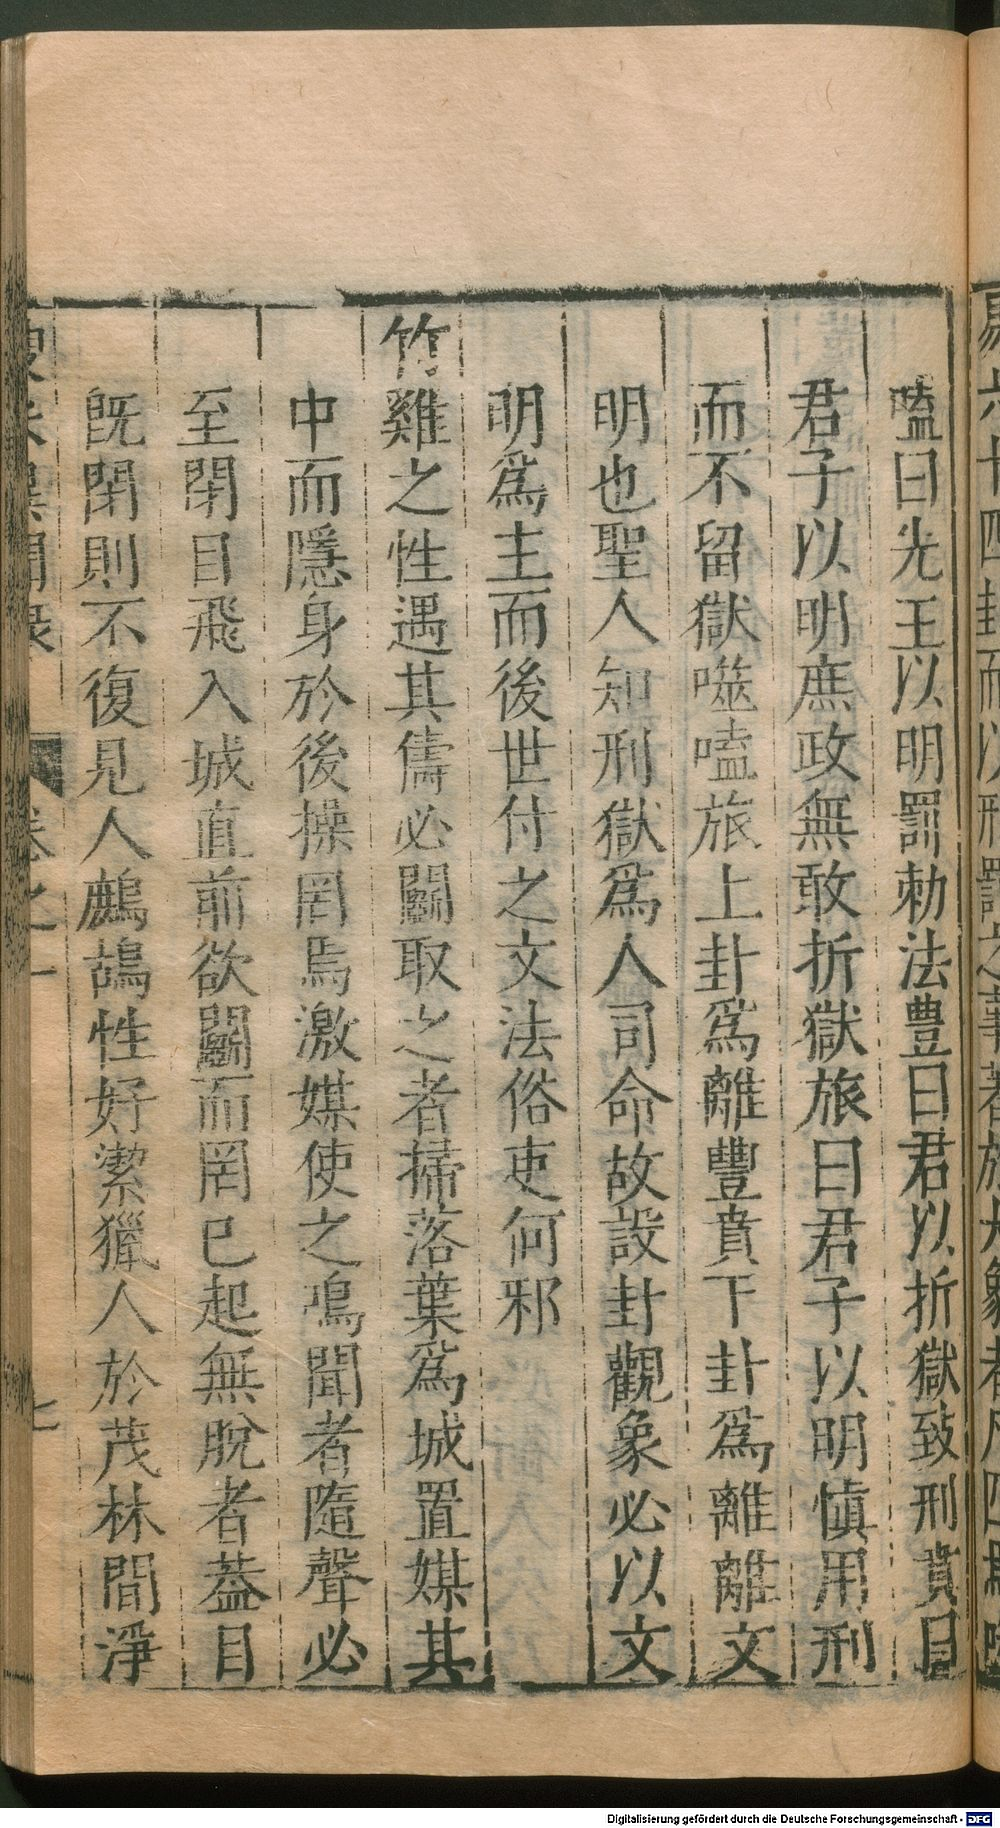 嗑曰先王以明罰勅法豐曰君以折獄致刑賁曰
君子以明庶政無敢折獄旅曰君子以明慎用刑
而不留獄噬嗑旅上卦爲離豐賁下卦爲離離文
明也聖人知刑獄爲人司命故設卦觀象必以文
明爲主而後世付之文法俗吏何邪
竹雞之性遇其儔必鬬取之者掃落葉爲城置媒其
中而隱身於後操罔焉激媒使之鳴聞者隨聲必
至閉目飛入城直前欲鬬而罔已起無脫者葢目
旣閉則不復見人鷓鴣性好潔獵人於茂林間淨
卷之一
七
Digitalisierung gefördert durch die Deutsche Forschungsgemeinschaft - DFG